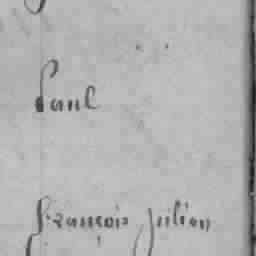 Paul
François Julien